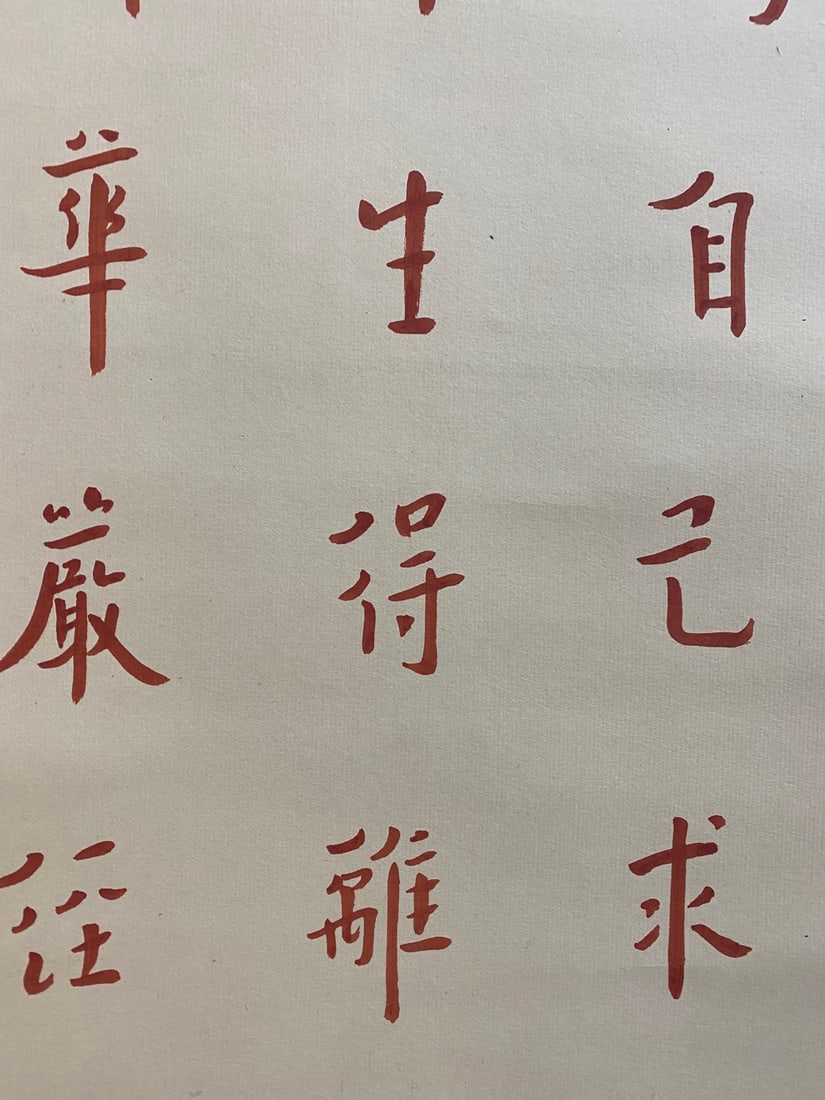 自己求
生得離
華嚴經